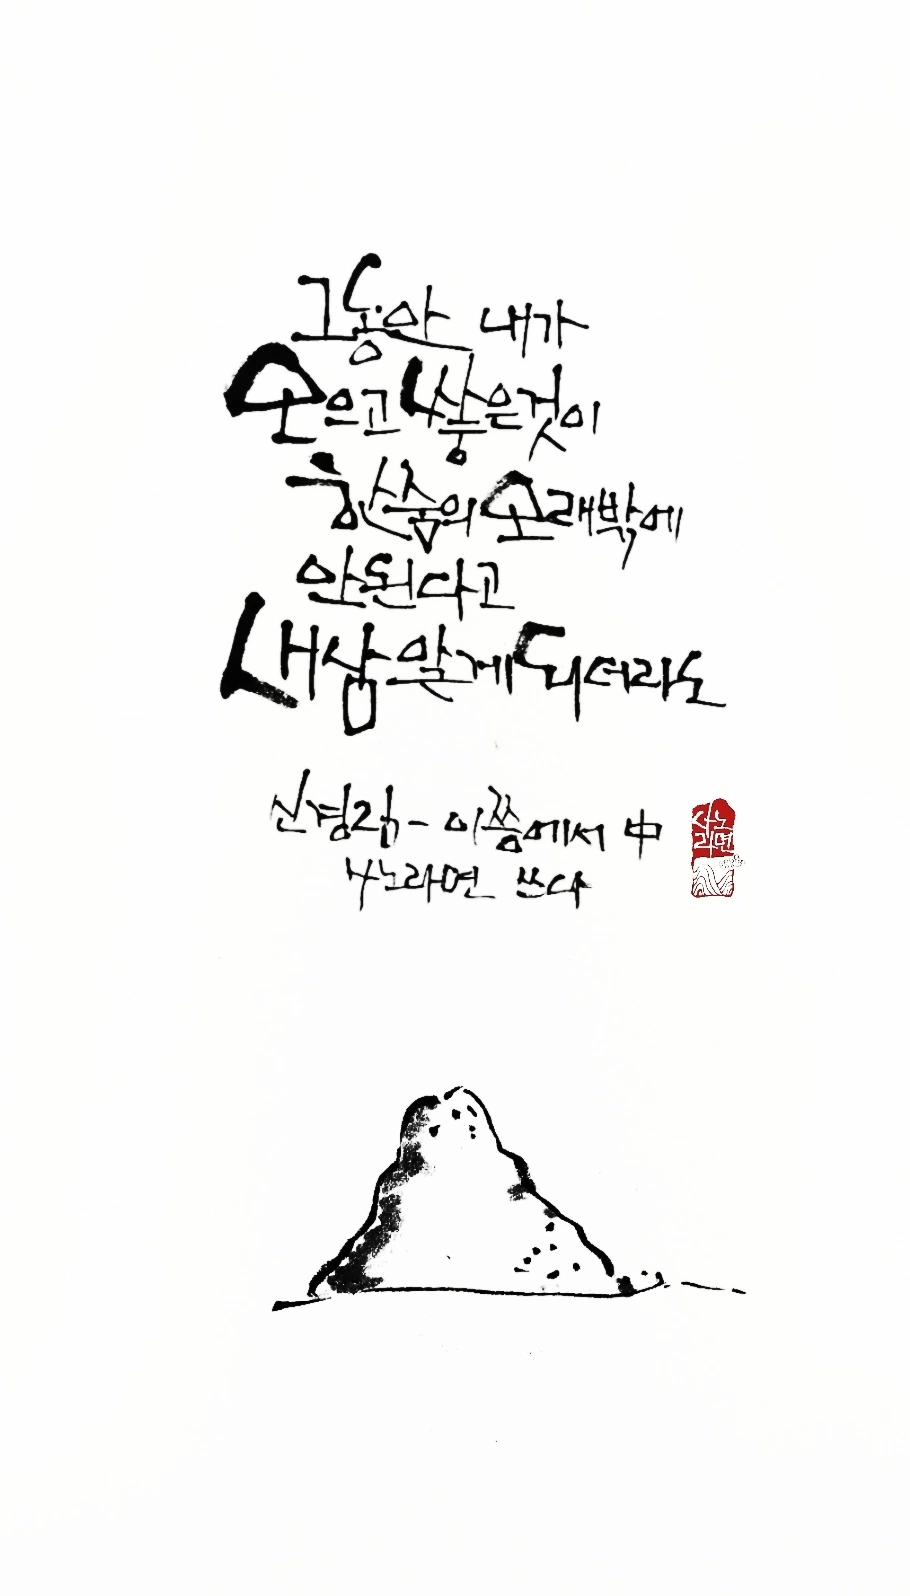 그동안 내가
모으고 쌓은것이
한줌의 모래밖에
안된다고
새삼 알게 되더라도
신경림 - 이쯤에서 中
사노라면 쓰다
사노
라면